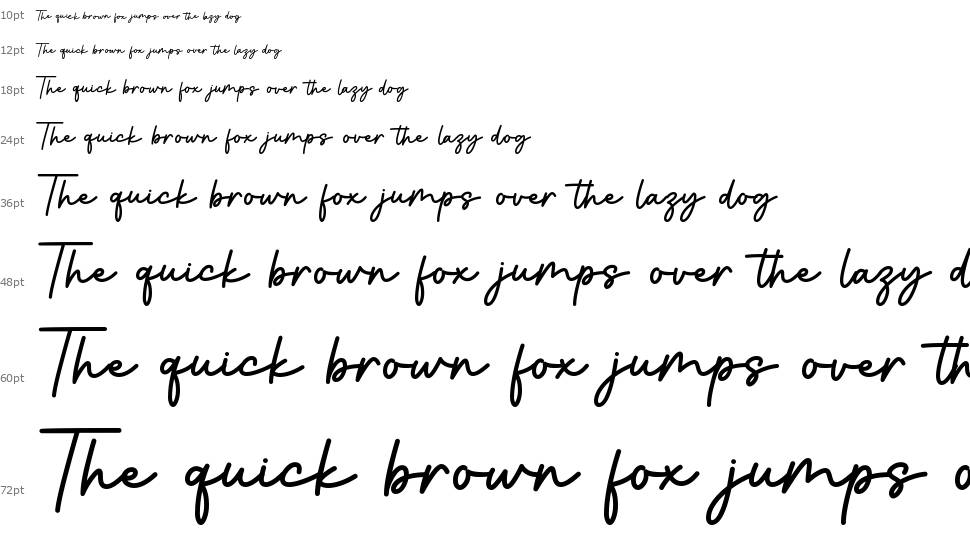 10pt The quick brown fox jumps over the lazy dog
12pt The quick brown fox jumps over the lazy dog
18pt The quick brown fox jumps over the lazy dog
24pt The quick brown fox jumps over the lazy dog
36pt The quick brown fox jumps over the lazy dog
48pt The quick brown fox jumps over the lazy d
60pt The quick brown fox jumps over th
72pt The quick brown fox jumps o